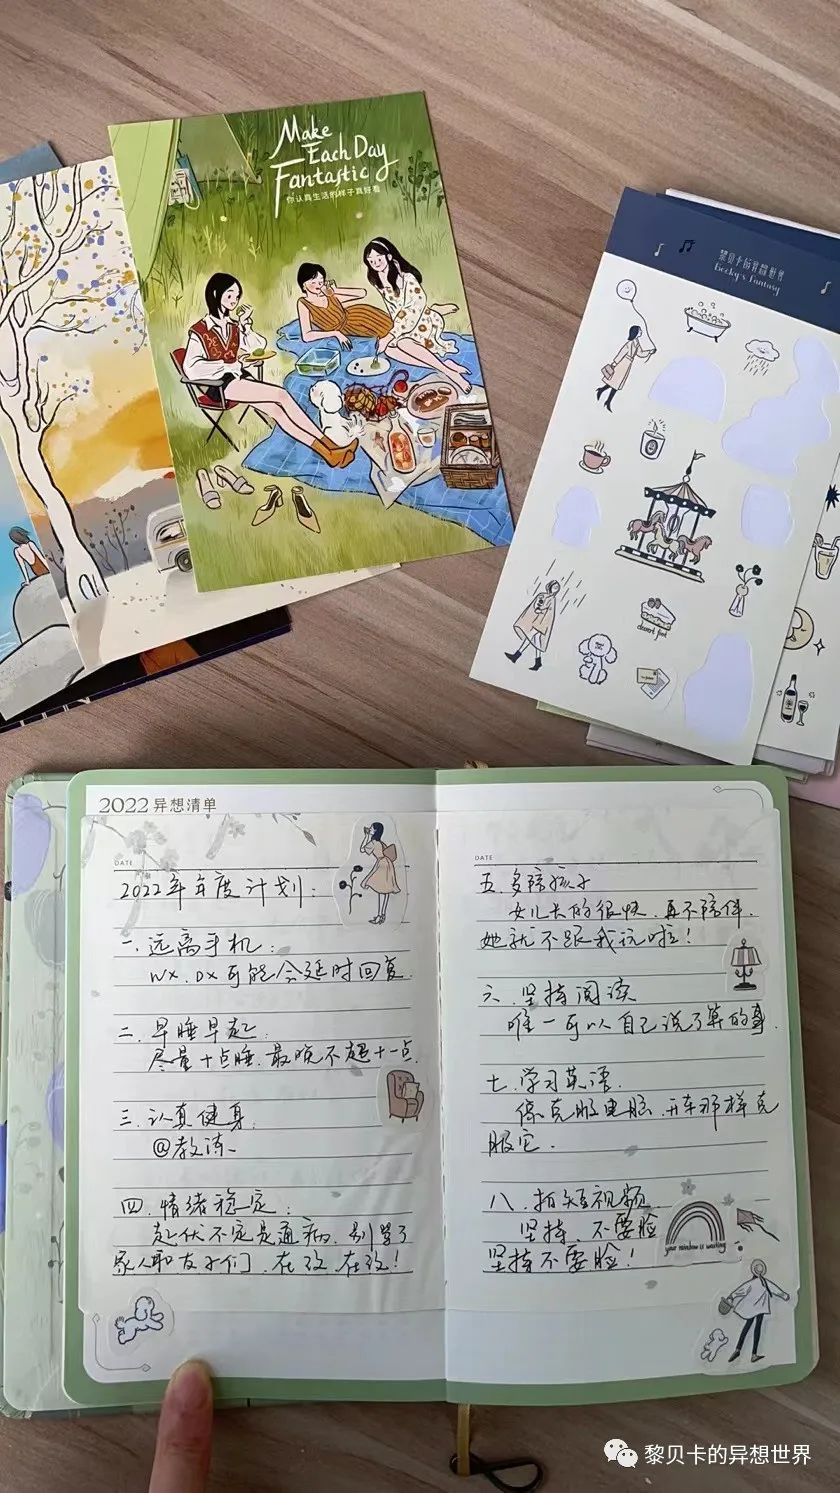 Make
Each Day
Fantastic
你认真生活的样子真好看
黎贝卡的异想世界
Becky's Fantasy
dessert first
2022 异想清单
DATE
2022年年度计划:
一.远离手机:
WX.DX可能会延时回复.
二.早睡早起.
尽量十点睡.最晚不超十一点.
三.认真健身.
@教练
四.情绪稳定.
起伏不定是通病.别累了
家人和友子们.在改.在改!
DATE
五.多陪孩子
女儿长的很快.再不陪伴.
她就不跟我玩啦!
六.坚持阅读
唯一可以自己说了算的事.
七.学习英语.
像克服电脑.开车那样克
服它.
八.拍短视频
坚持.不要脸
坚持不要脸!
your rainbow is waiting
黎贝卡的异想世界